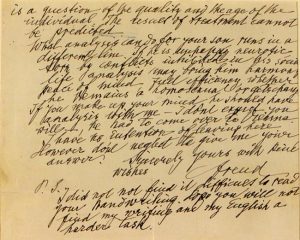 is a question of the quality and the age of the
individual. The result of treatment cannot
be predicted.
What analysis can do for your son runs in a
different line. If he is unhappy, neurotic,
torn by conflicts, inhibited in his social
life, analysis may bring him harmony,
peace of mind, full efficiency, whether
he remains a homosexual or gets changed.
If you make up your mind, he should have
analysis with me. I don't expect you
will, he has to come over to Vienna.
I have no intention of leaving here.
However don't neglect to give me your
answer.
Sincerely yours with kind
wishes
Freud
P. S.
I did not find it difficult to read
your handwriting. Hope you will not
find my writing and my English a
harder task.